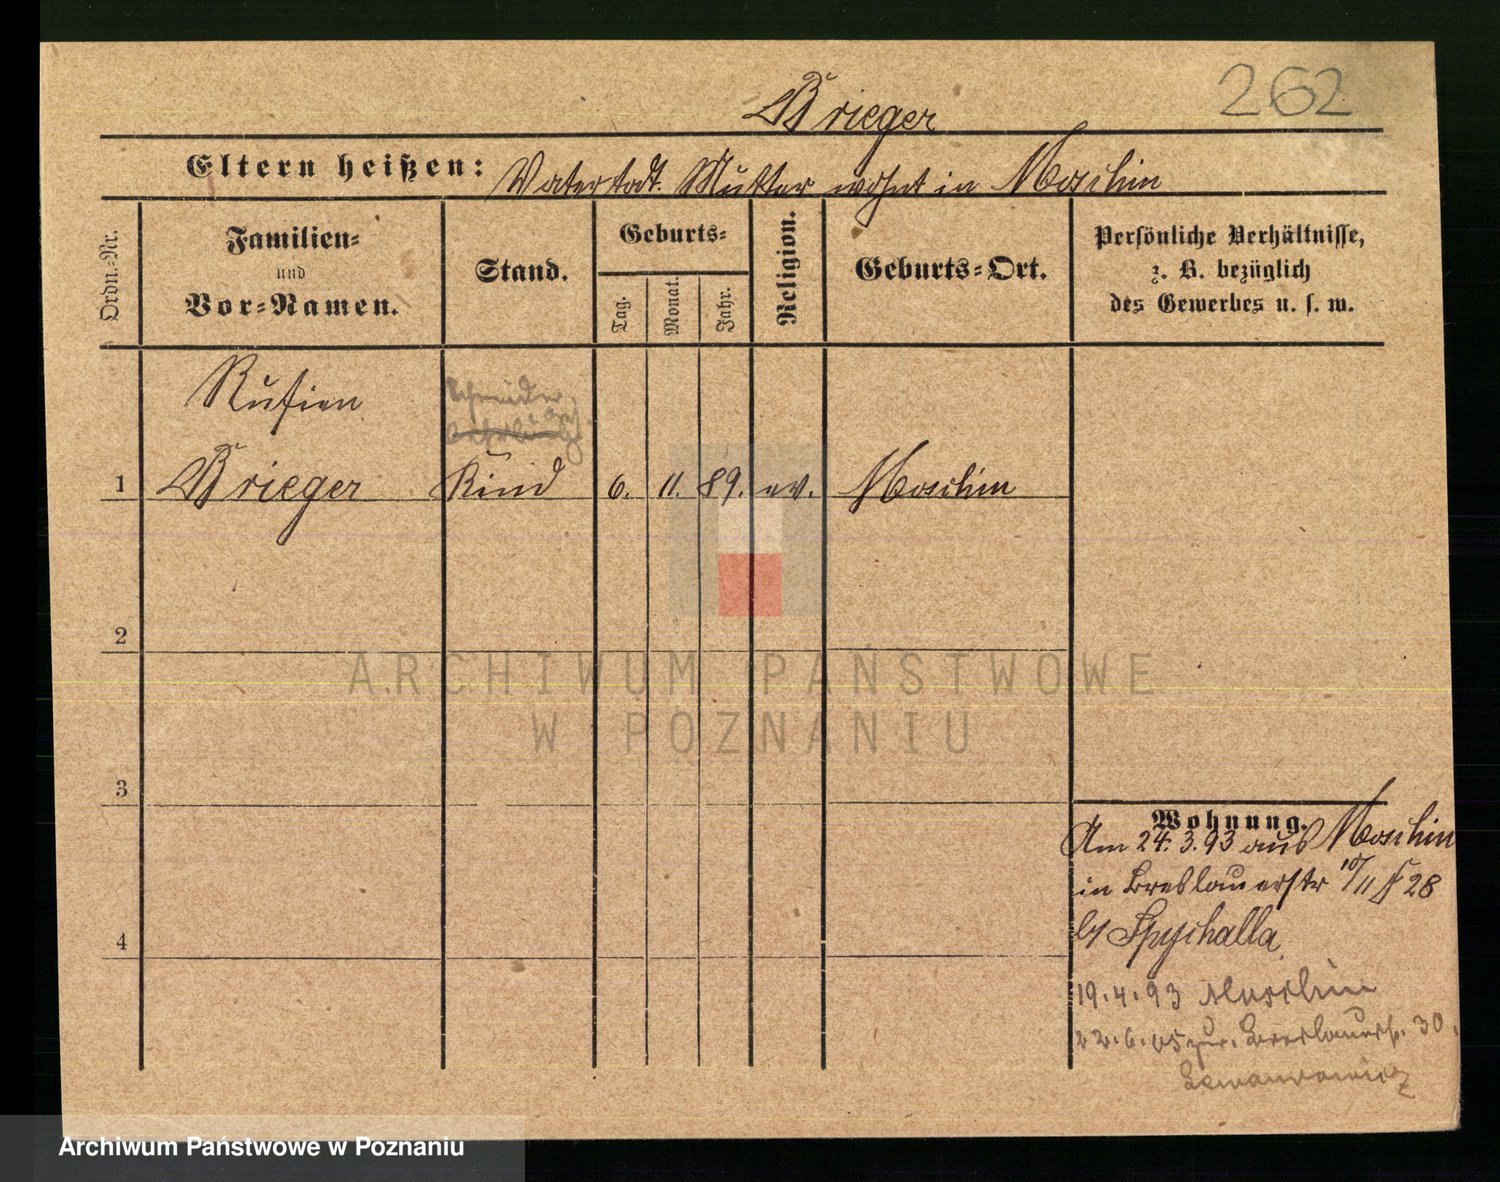 262
Brieger
Eltern heißen: Vater todt. Mutter wohnt in Moschin
Ordn.-Nr.
Familien-
und
Vor-Namen.
Stand.
Geburts-
Tag.
Monat.
Jahr.
Religion.
Geburts-Ort.
Persönliche Verhältnisse,
z. B. bezüglich
des Gewerbes u. s. w.
Schneider
1 Brieger Kind 6. 11. 89. ev. Moschin
2
3
4
Wohnung.
Am 24.3.93 aus Moschin
in Breslauerstr 10/11 28
b/ Spychalla
19.4.93 Moschin
22.6.05 zur. Breslauerstr. 30.
ARCHIWUM PAŃSTWOWE
W POZNANIU
Archiwum Państwowe w Poznaniu